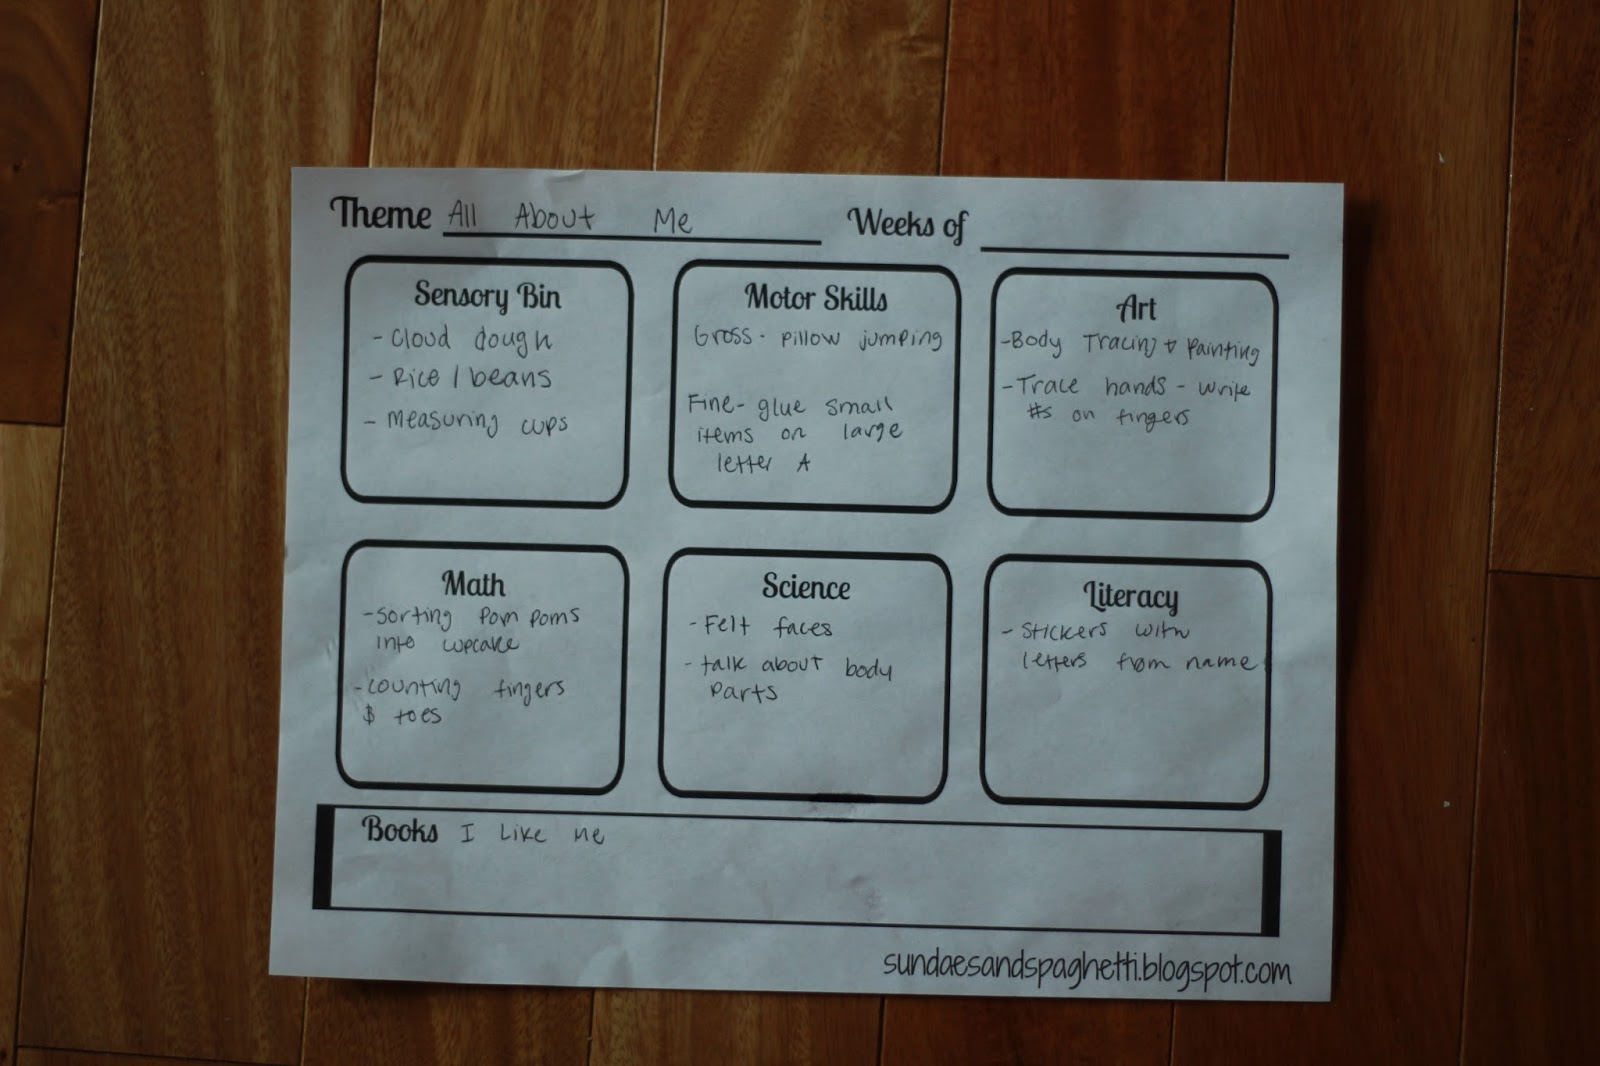 Theme All About Me Weeks of
Sensory Bin
- Cloud dough
- Rice / beans
- Measuring cups
Motor Skills
Gross - pillow jumping
Fine - glue small
items on large
letter A
Art
- Body Tracing + Painting
- Trace hands - write
#s on fingers
Math
- Sorting Pom poms
into cupcake
- counting fingers
& toes
Science
- Felt faces
- talk about body
parts
Literacy
- Stickers with
letters from name
Books I Like Me
sundaesandspaghetti.blogspot.com